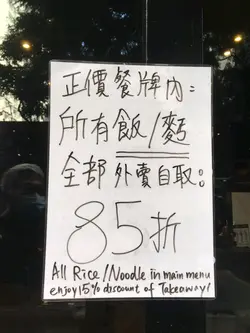 正價餐牌內：
所有飯/麵
全部外賣自取：
85折
All Rice/Noodle in main menu
enjoy 15% discount of Takeaway!